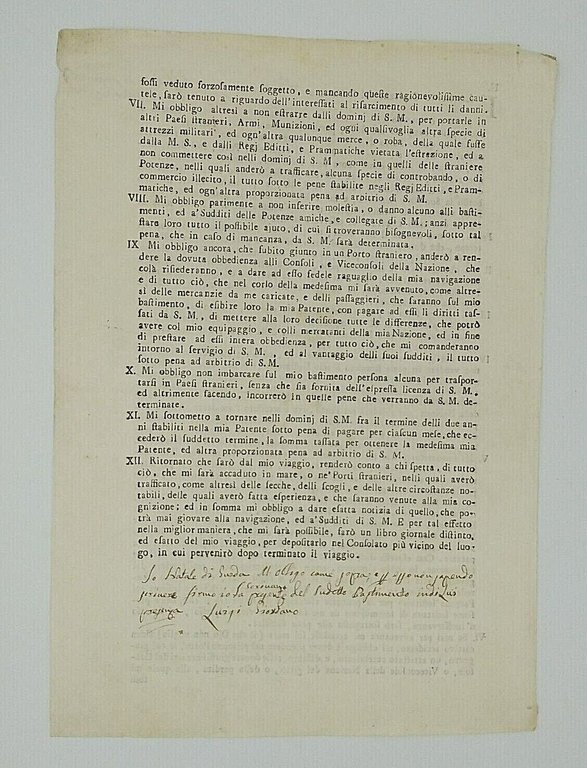 fossi veduto forzosamente soggetto, e mancando queste ragionevolissime cau-
tele, sarò tenuto a riguardo dell'interessati al risarcimento di tutti li danni.
VII. Mi obbligo altresì a non estrarre dalli dominj di S. M., per portarle in
altri Paesi stranieri, Armi, Munizioni, ed ogni qualsivoglia altra specie di
attrezzi militari, ed ogn'altra qualunque merce, o roba, della quale fusse
dalla M. S., e dalli Regj Editti, e Prammatiche vietata l'estrazione, ed a
non commettere così nelli dominj di S. M, come in quelli delle straniere
Potenze, nelli quali anderò a trafficare, alcuna specie di controbando, o di
commercio illecito, il tutto sotto le pene stabilite negli Regj Editti, e Pram-
matiche, ed ogn'altra proporzionata pena ad arbitrio di S. M.
VIII. Mi obbligo parimente a non inferire molestia, o danno alcuno alli basti-
menti, ed a'Sudditi delle Potenze amiche, e collegate di S. M.; anzi appre-
stare loro tutto il possibile ajuto, di cui si troveranno bisognevoli, sotto tal
pena, che in caso di mancanza, da S. M. sarà determinata.
IX Mi obbligo ancora, che subito giunto in un Porto straniero, anderò a ren-
dere la dovuta obbedienza alli Consoli, e Viceconsoli della Nazione, che
colà risiederanno, e a dare ad esso fedele raguaglio della mia navigazione
e di tutto ciò, che nel corso della medesima mi sarà avvenuto, come altre-
sì delle mercanzie da me caricate, e delli passaggieri, che saranno sul mio
bastimento, d'esibire loro la mia Patente, con pagare ad essi li diritti tas-
sati da S. M., di mettere alla loro decisione tutte le differenze, che potrò
avere col mio equipaggio, e colli mercatanti della mia Nazione, ed in fine
di prestare ad essi intera obbedienza, per tutto ciò, che mi comanderanno
intorno al servigio di S. M., ed al vantaggio delli suoi sudditi, il tutto
sotto pena ad arbitrio di S.M.
X. Mi obbligo non imbarcare sul mio bastimento persona alcuna per traspor-
tarsi in Paesi stranieri, senza che sia fornita dell'espressa licenza di S. M.,
ed altrimente facendo, incorrerò in quelle pene che verranno da S. M. de-
terminate.
XI. Mi sottometto a tornare nelli dominj di S.M. fra il termine delli due an-
ni stabiliti nella mia Patente sotto pena di pagare per ciascun mese, che ec-
cederò il suddetto termine, la somma tassata per ottenere la medesima mia
Patente, ed altra proporzionata pena ad arbitrio di S. M.
XII. Ritornato che sarò dal mio viaggio, renderò conto a chi spetta, di tutto
ciò, che mi sarà accaduto in mare, o ne' Porti stranieri, nelli quali averò
trafficato, come altresì delle secche, delli scogli, e delle altre circostanze no-
tabili, delle quali averò fatta esperienza, e che saranno venute alla mia co-
gnizione; ed in somma mi obbligo a dare esatta notizia di quello, che po-
trà mai giovare alla navigazione, ed a'Sudditi di S. M. E per tal effetto
nella miglior maniera, che mi sarà possibile, sarò un libro giornale distinto,
ed esatto del mio viaggio, per depositarlo nel Consolato più vicino del luo-
go, in cui perverrò dopo terminato il viaggio.
Io Natale di M obligo come sopra, e non sapendo
scrivere firmo io lo scrivano del sudetto Bastimento in di Lui
presenza Luigi Giordano